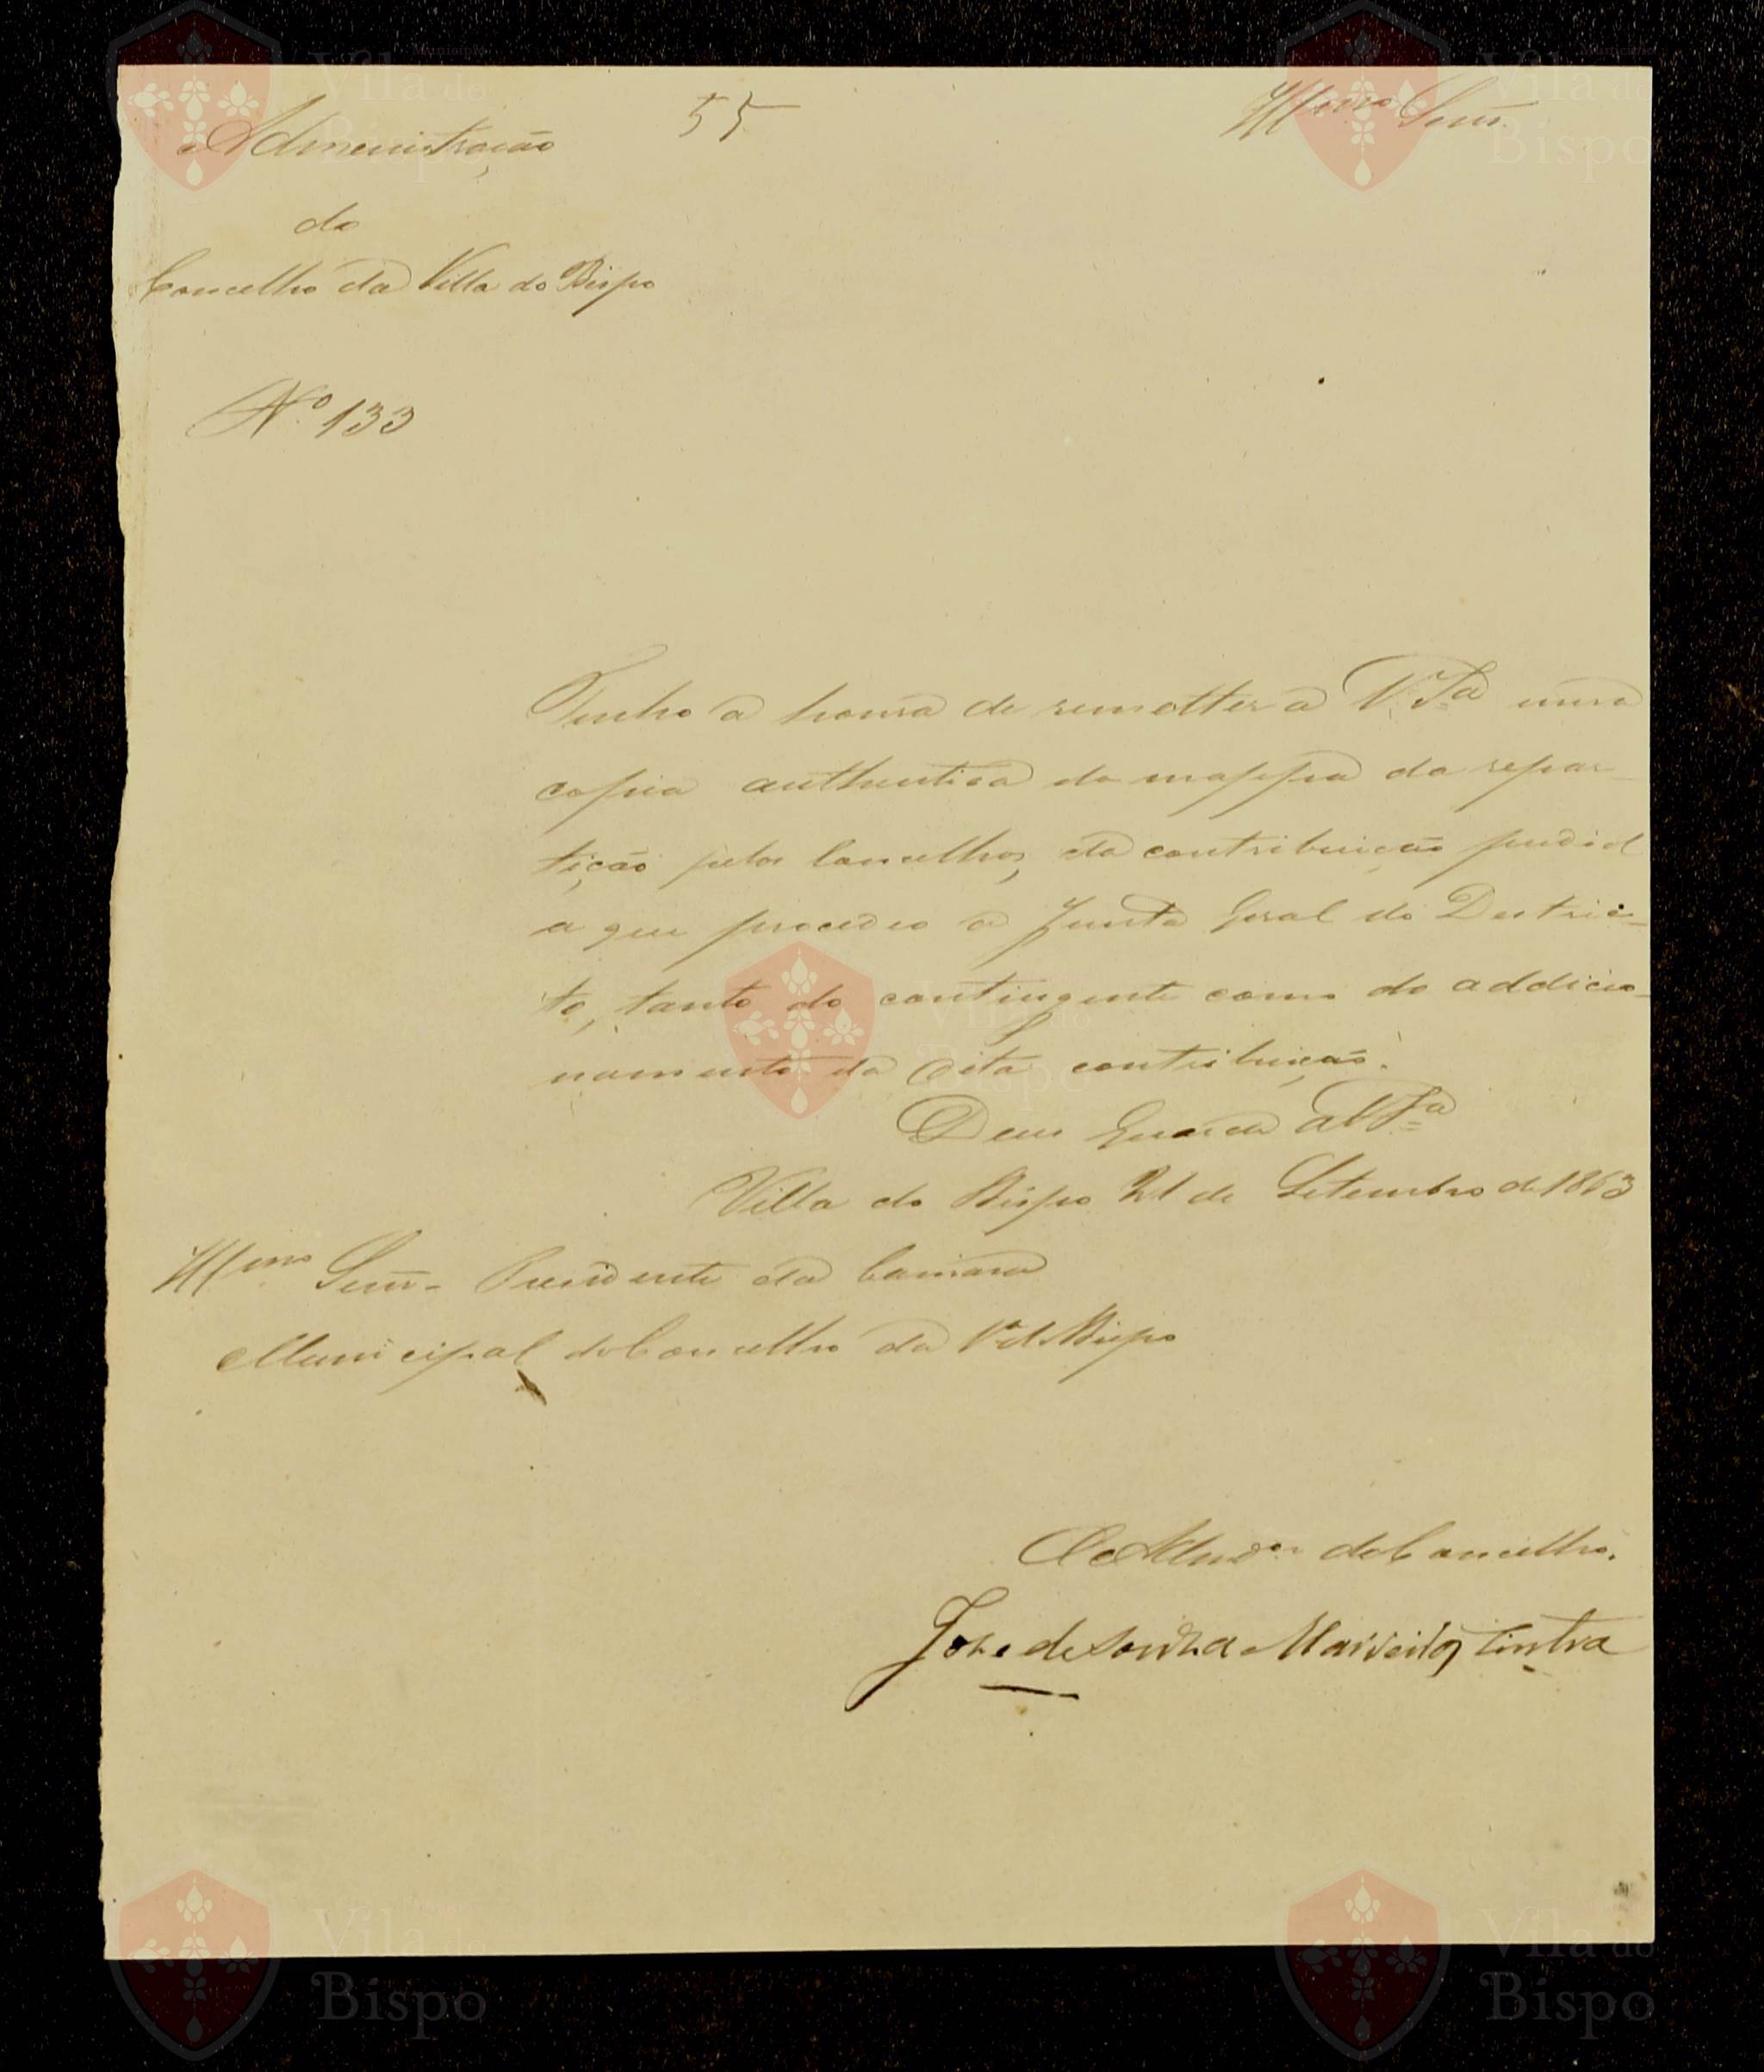 Administração
do
Concelho da Villa do Bispo
55
Illmo Senr.
Nº 133
Tenho a honra de remetter a V. Sa uma
copia authentica do mappa da repar-
tição pelos Concelhos, da contribuição predial
a que procedeo a Junta Geral do Destric-
to, tanto do contingente como do addicio-
namento da dita contribuição.
Deus Guarde a V Sa
Villa do Bispo 21 de Setembro de 1863
Illmo Senr. Presidente da Camara
Municipal do Concelho da Va do Bispo
O Admor do Concelho.
Jose de Souza Cintra
Município
Vila do
Bispo